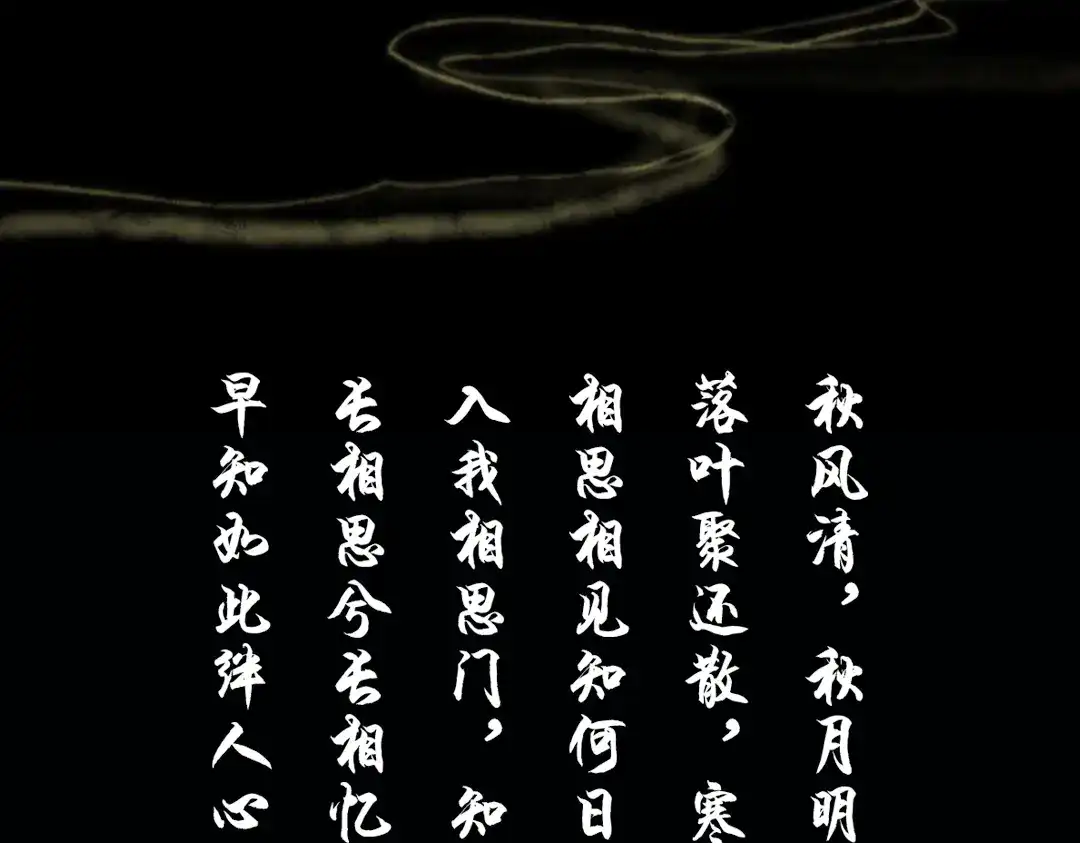 秋风清，秋月明
落叶聚还散，寒
相思相见知何日
入我相思门，知
长相思兮长相忆
早知如此绊人心